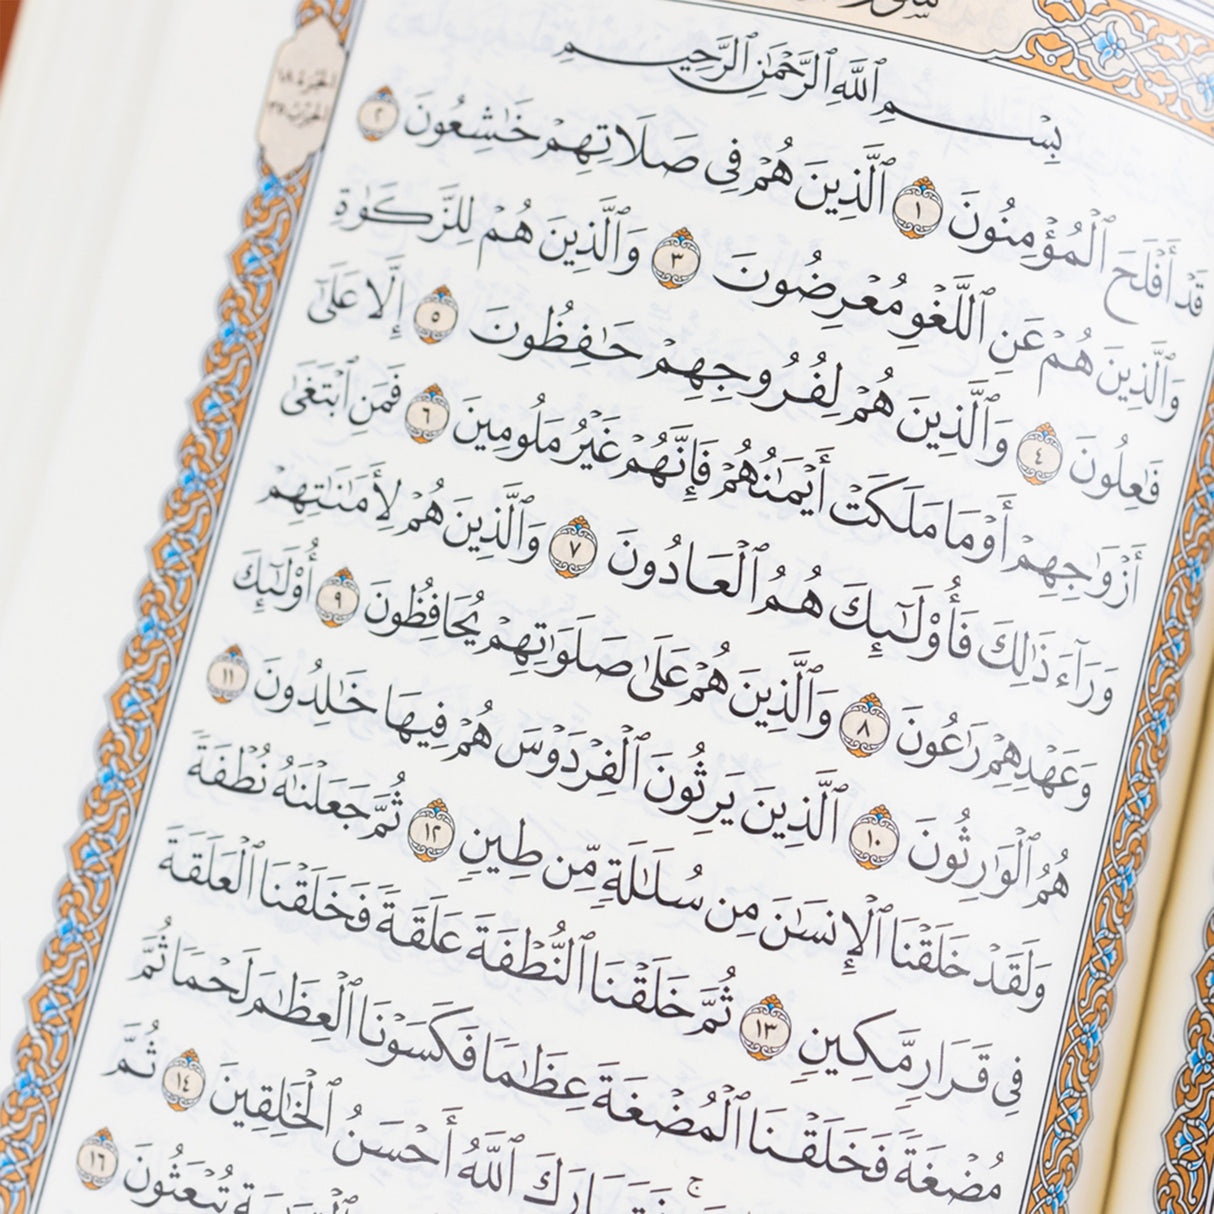 الجزء ١٨
الحزب ٣٥
بِسْمِ ٱللَّهِ ٱلرَّحْمَٰنِ ٱلرَّحِيمِ
قَدْ أَفْلَحَ ٱلْمُؤْمِنُونَ ١ ٱلَّذِينَ هُمْ فِى صَلَاتِهِمْ خَٰشِعُونَ ٢
وَٱلَّذِينَ هُمْ عَنِ ٱللَّغْوِ مُعْرِضُونَ ٣ وَٱلَّذِينَ هُمْ لِلزَّكَوٰةِ
فَٰعِلُونَ ٤ وَٱلَّذِينَ هُمْ لِفُرُوجِهِمْ حَٰفِظُونَ ٥ إِلَّا عَلَىٰٓ
أَزْوَٰجِهِمْ أَوْ مَا مَلَكَتْ أَيْمَٰنُهُمْ فَإِنَّهُمْ غَيْرُ مَلُومِينَ ٦ فَمَنِ ٱبْتَغَىٰ
وَرَآءَ ذَٰلِكَ فَأُو۟لَٰٓئِكَ هُمُ ٱلْعَادُونَ ٧ وَٱلَّذِينَ هُمْ لِأَمَٰنَٰتِهِمْ
وَعَهْدِهِمْ رَٰعُونَ ٨ وَٱلَّذِينَ هُمْ عَلَىٰ صَلَوَٰتِهِمْ يُحَافِظُونَ ٩ أُو۟لَٰٓئِكَ
هُمُ ٱلْوَٰرِثُونَ ١٠ ٱلَّذِينَ يَرِثُونَ ٱلْفِرْدَوْسَ هُمْ فِيهَا خَٰلِدُونَ ١١
وَلَقَدْ خَلَقْنَا ٱلْإِنسَٰنَ مِن سُلَٰلَةٍ مِّن طِينٍ ١٢ ثُمَّ جَعَلْنَٰهُ نُطْفَةً
فِى قَرَارٍ مَّكِينٍ ١٣ ثُمَّ خَلَقْنَا ٱلنُّطْفَةَ عَلَقَةً فَخَلَقْنَا ٱلْعَلَقَةَ
مُضْغَةً فَخَلَقْنَا ٱلْمُضْغَةَ عِظَٰمًا فَكَسَوْنَا ٱلْعِظَٰمَ لَحْمًا ثُمَّ
فَتَبَارَكَ ٱللَّهُ أَحْسَنُ ٱلْخَٰلِقِينَ ١٤ ثُمَّ
تُبْعَثُونَ ١٦